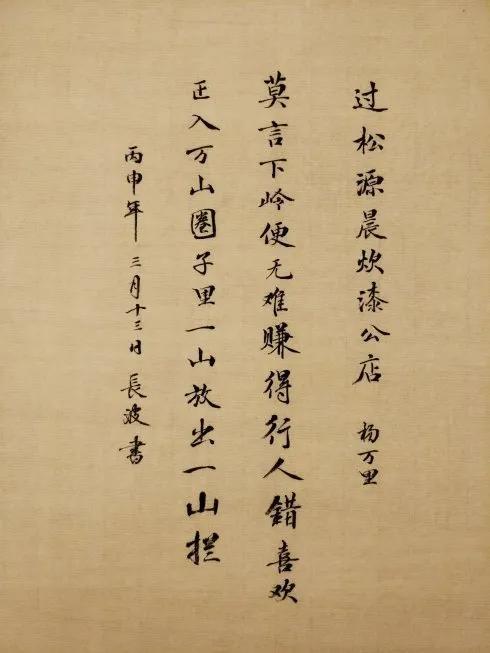 过松源晨炊漆公店 杨万里
莫言下岭便无难赚得行人错喜欢
正入万山圈子里一山放出一山拦
丙申年三月十三日 長波書